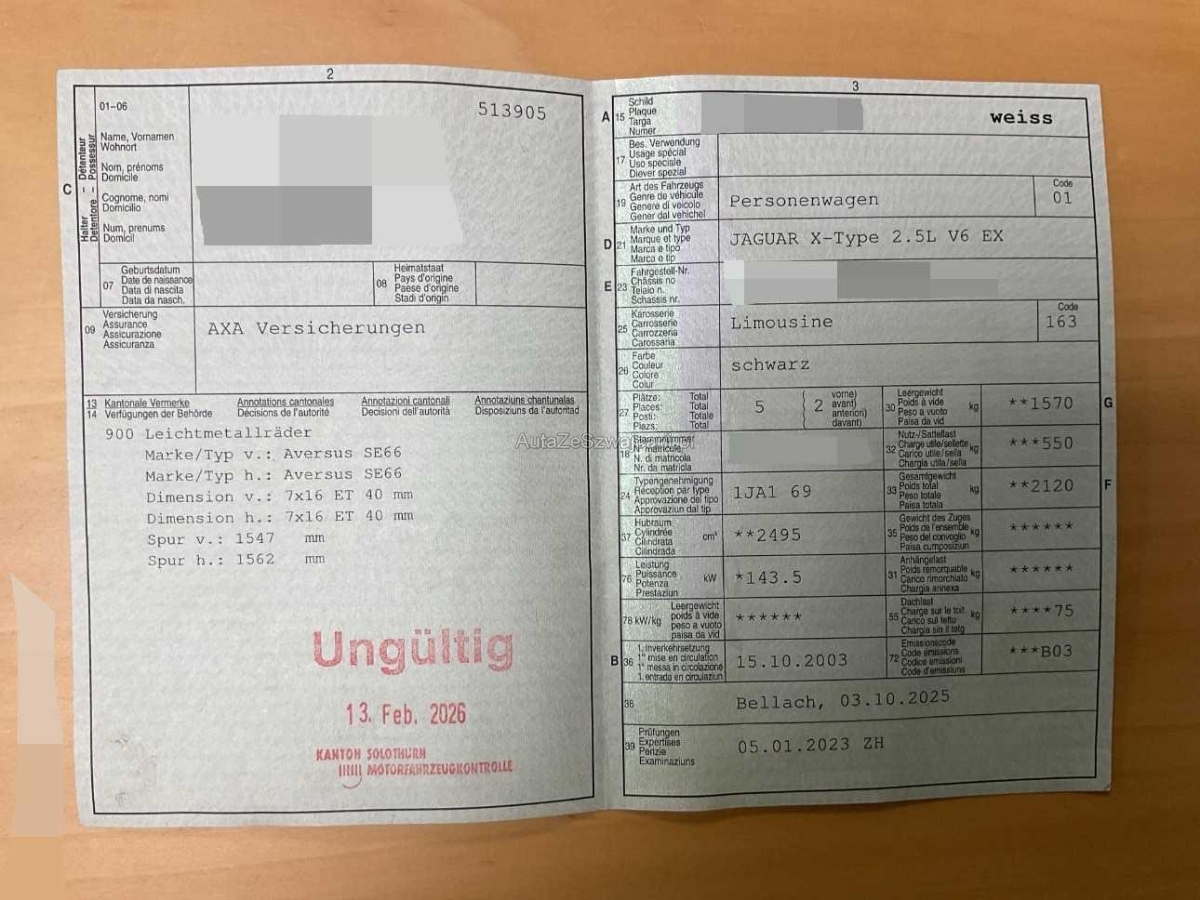 2
01-06
513905
C
Halter - Détenteur
Detentore - Possessur
Name, Vornamen
Wohnort
Nom, prénoms
Domicile
Cognome, nomi
Domicilio
Num, prenums
Domicil
07
Geburtsdatum
Date de naissance
Data di nascita
Data da nasch.
08
Heimatstaat
Pays d'origine
Paese d'origine
Stadi d'origin
09
Versicherung
Assurance
Assicurazione
Assicuranza
AXA Versicherungen
13 Kantonale Vermerke Annotations cantonales Annotazioni cantonali Annotaziuns chantunalas
14 Verfügungen der Behörde Décisions de l'autorité Decisioni dell'autorità Disposiziuns da l'autoritad
900 Leichtmetallräder
Marke/Typ v.: Aversus SE66
Marke/Typ h.: Aversus SE66
Dimension v.: 7x16 ET 40 mm
Dimension h.: 7x16 ET 40 mm
Spur v.: 1547 mm
Spur h.: 1562 mm
Ungültig
13. Feb. 2026
KANTON SOLOTHURN
MOTORFAHRZEUGKONTROLLE
3
A 15
Schild
Plaque
Targa
Numer
weiss
17
Bes. Verwendung
Usage spécial
Uso speciale
Diever spezial
19
Art des Fahrzeugs
Genre de véhicule
Genere di veicolo
Gener dal vehichel
Personenwagen
Code
01
D 21
Marke und Typ
Marque et type
Marca e tipo
Marca e tip
JAGUAR X-Type 2.5L V6 EX
E 23
Fahrgestell-Nr.
Châssis no
Telaio n.
Schassis nr.
25
Karosserie
Carrosserie
Carrozzeria
Carossaria
Limousine
Code
163
26
Farbe
Couleur
Colore
Colur
schwarz
27
Plätze: Total
Places: Total
Posti: Totale
Plazs: Total
5
2
vorne)
avant)
anteriori)
davant)
30
Leergewicht
Poids à vide
Peso a vuoto
Paisa da vid
kg
**1570
G
18
Stammnummer
N° matricule
N. di matricola
Nr. da matricla
32
Nutz-/Sattellast
Charge utile/sellette
Carico utile/sella
Chargia utila/sella
kg
***550
24
Typengenehmigung
Réception par type
Approvazione del tipo
Approvaziun dal tip
1JA1 69
33
Gesamtgewicht
Poids total
Peso totale
Paisa totala
kg
**2120
F
37
Hubraum
Cylindrée
Cilindrata
Cilindrada
cm³
**2495
35
Gewicht des Zuges
Poids de l'ensemble
Peso del convoglio
Paisa cumposiziun
kg
******
76
Leistung
Puissance
Potenza
Prestaziun
kW
*143.5
31
Anhängelast
Poids remorquable
Carico rimorchiato
Chargia annexa
kg
******
78 kW/kg
Leergewicht
poids à vide
peso a vuoto
paisa da vid
******
55
Dachlast
Charge sur le toit
Carico sul tetto
Chargia sin il tetg
kg
****75
B 36
1. Inverkehrsetzung
1re mise en circulation
1a messa in circolazione
1. entrada en circulaziun
15.10.2003
72
Emissionscode
Code émissions
Codice emissioni
Code d'emissiuns
***B03
38
Bellach, 03.10.2025
39
Prüfungen
Expertises
Perizie
Examinaziuns
05.01.2023 ZH